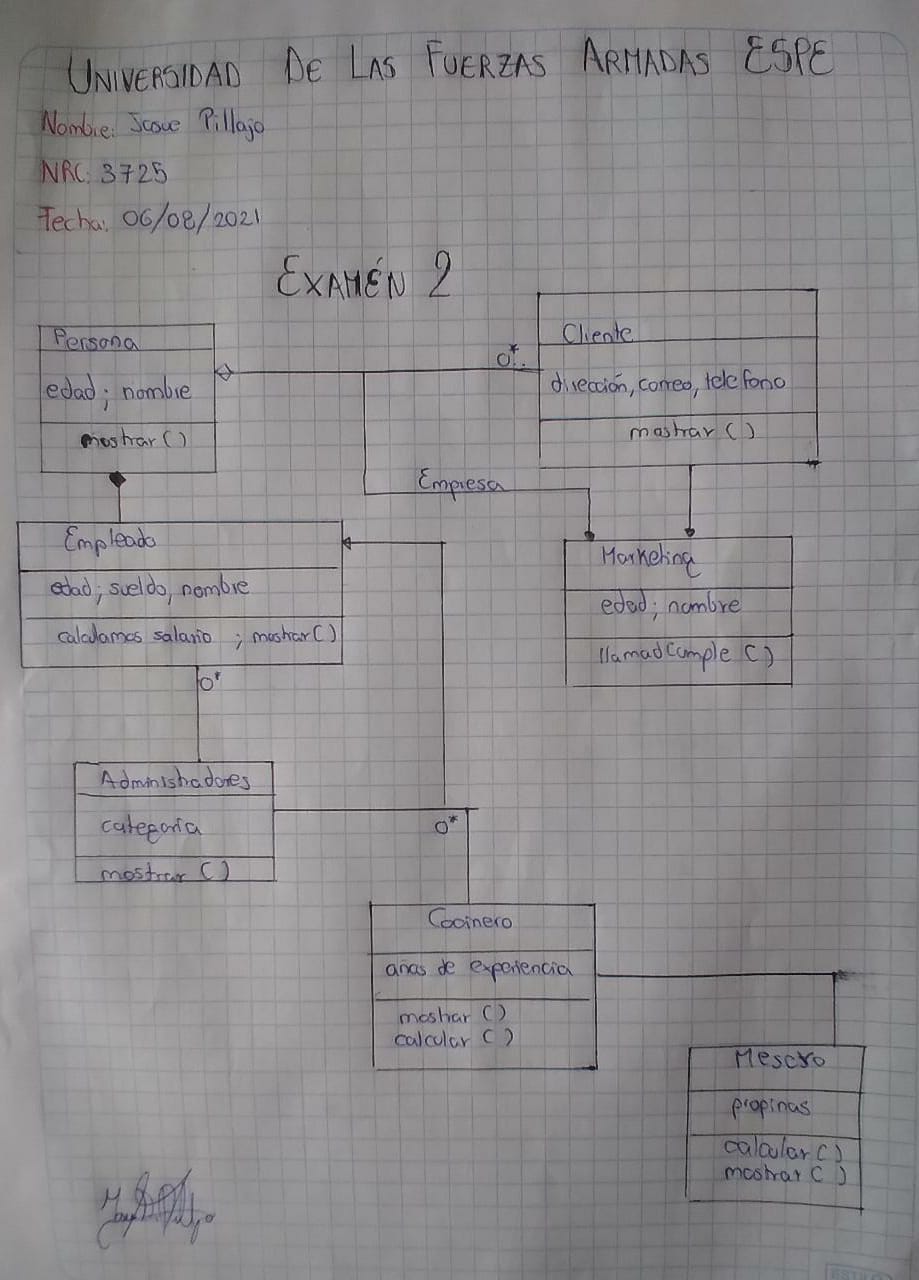 UNIVERSIDAD DE LAS FUERZAS ARMADAS ESPE
Nombre: Josue Pillajo
NRC: 3725
Fecha: 06/08/2021
EXAMÉN 2
Persona
edad; nombre
mostrar()
Cliente
dirección, correo, telefono
mostrar ()
0*..
Empresa
Empleado
edad; sueldo, nombre
calculamos salario ; mostrar()
Marketing
edad; nombre
llamadCumple ()
0*
Administradores
categoria
mostrar ()
0*
Cocinero
años de experiencia
mostrar ()
calcular ()
Mesero
propinas
calcular ()
mostrar ()